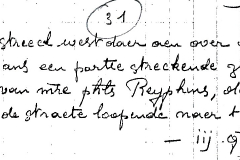 31
streect west daer aen over
ans een partie streckende
van mre phls Reyphins,
de straete loopende naer
— iij